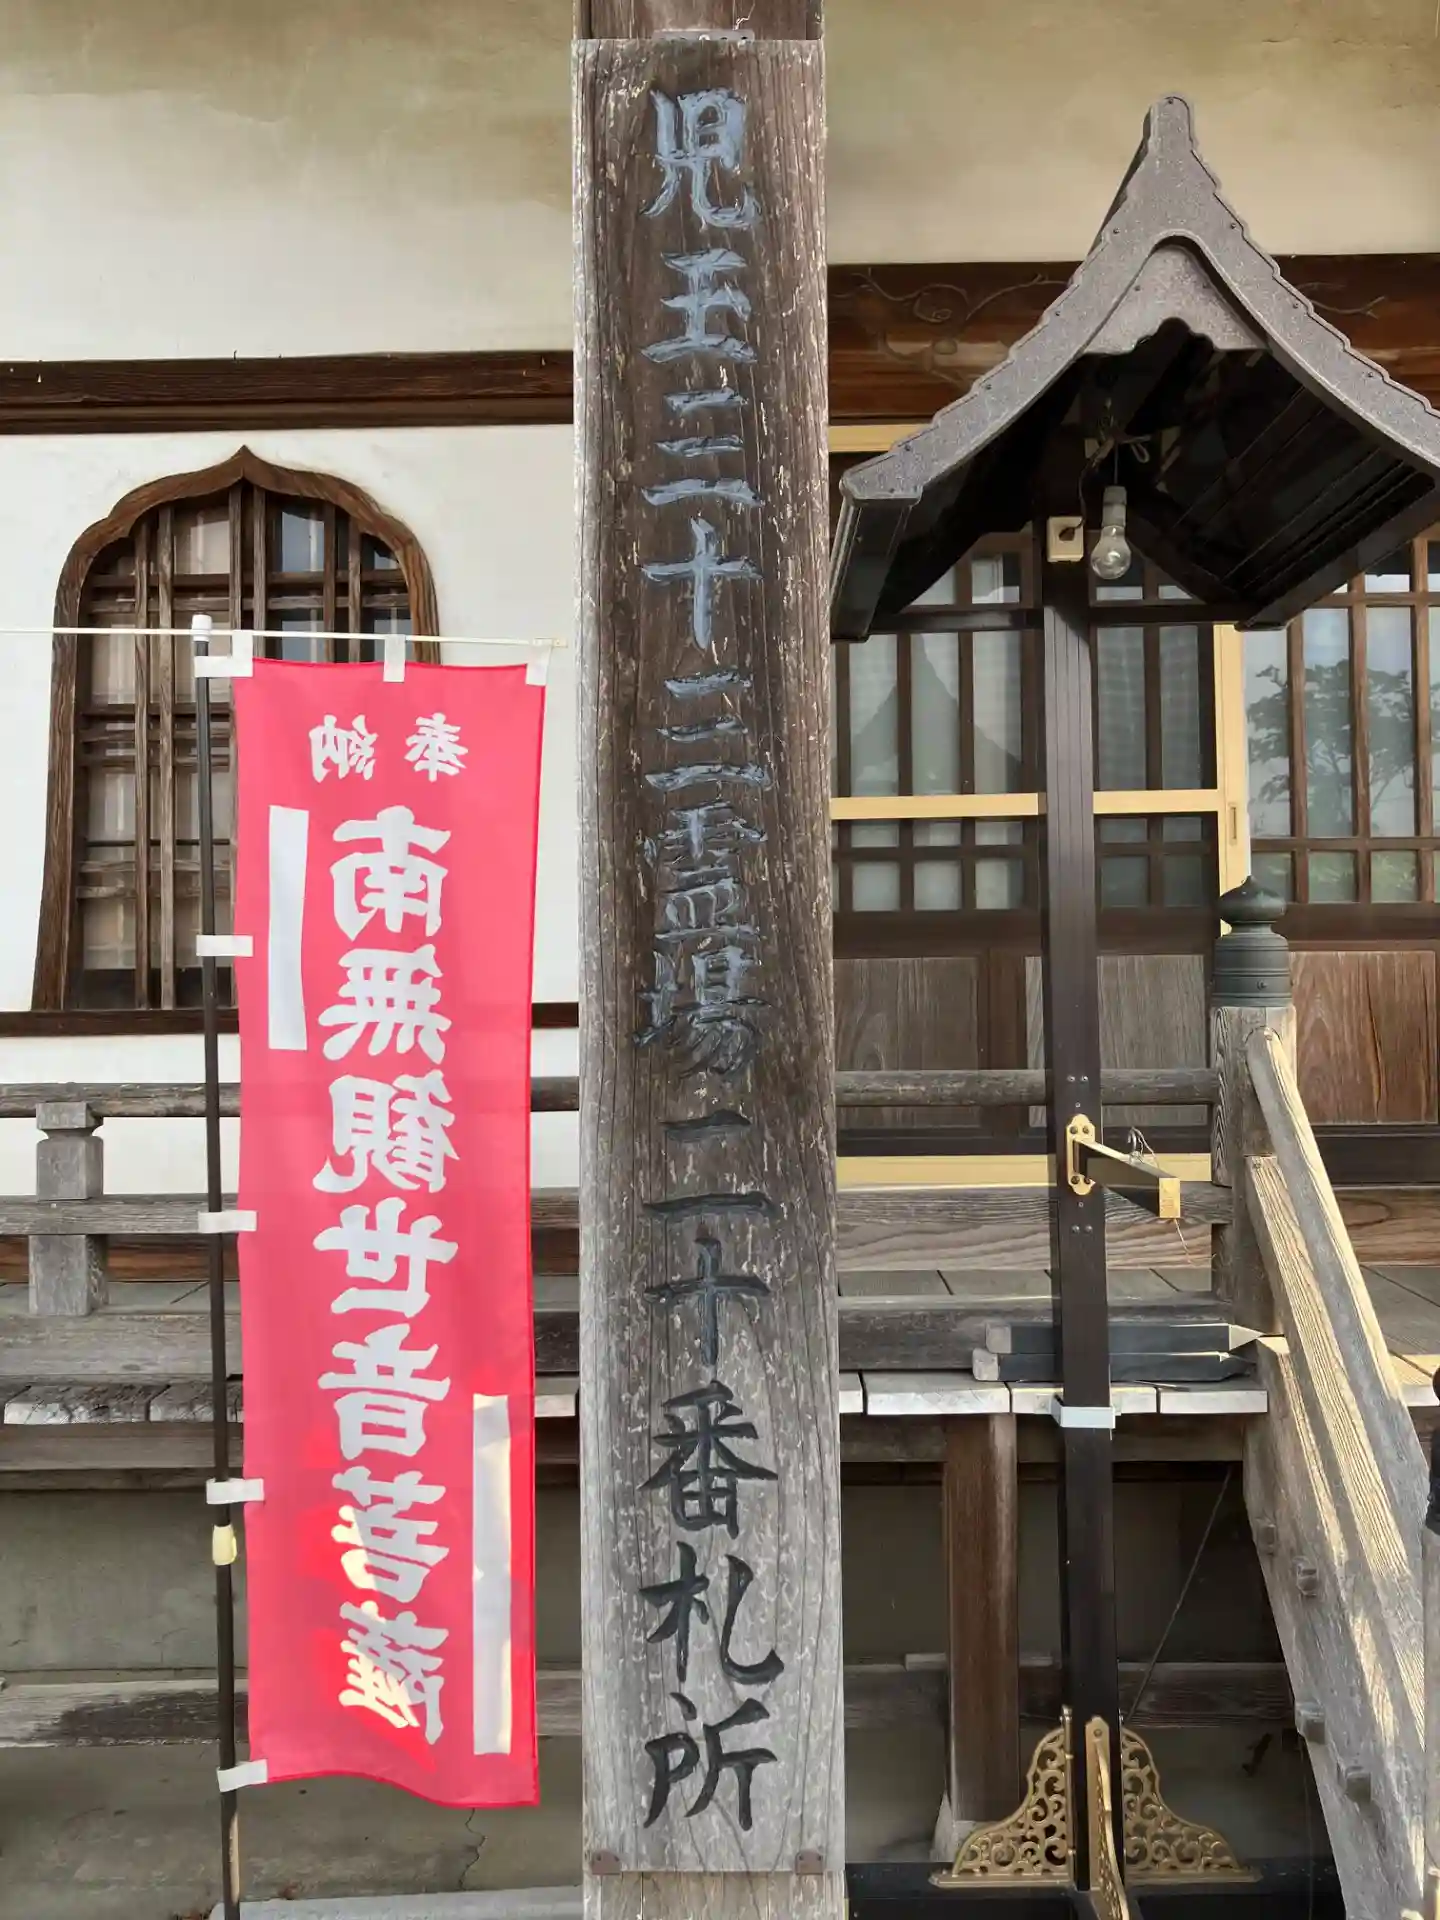 児玉三十三霊場二十番札所
奉納
南無観世音菩薩